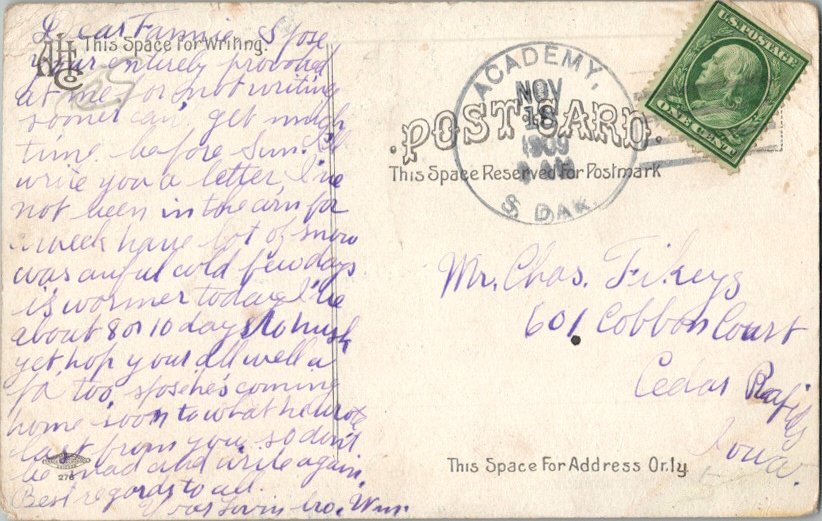 Dear Fannie Spose
This Space for Writing.
AHC Co
your entirely provoked
at me for not writing
sooner can't get much
time before Sun. I'll
write you a letter, I've
not been in the corn for
a week have lot of snow
was awful cold few days
is wormer today I've
about 8 or 10 days to husk
yet, hop your all well &
Pa too, spose he's coming
home soon to what he wrote
last from you so don't
be mad and write again.
Best regards to all.
Your Lovin bro. Wm.
276
ACADEMY,
NOV
18
1909
S. DAK.
POST CARD.
This Space Reserved for Postmark
U.S. POSTAGE
ONE CENT
Mr. Chas. Fikeys
601 Cobbon Court
Cedar Rapids
Iowa.
This Space For Address Only